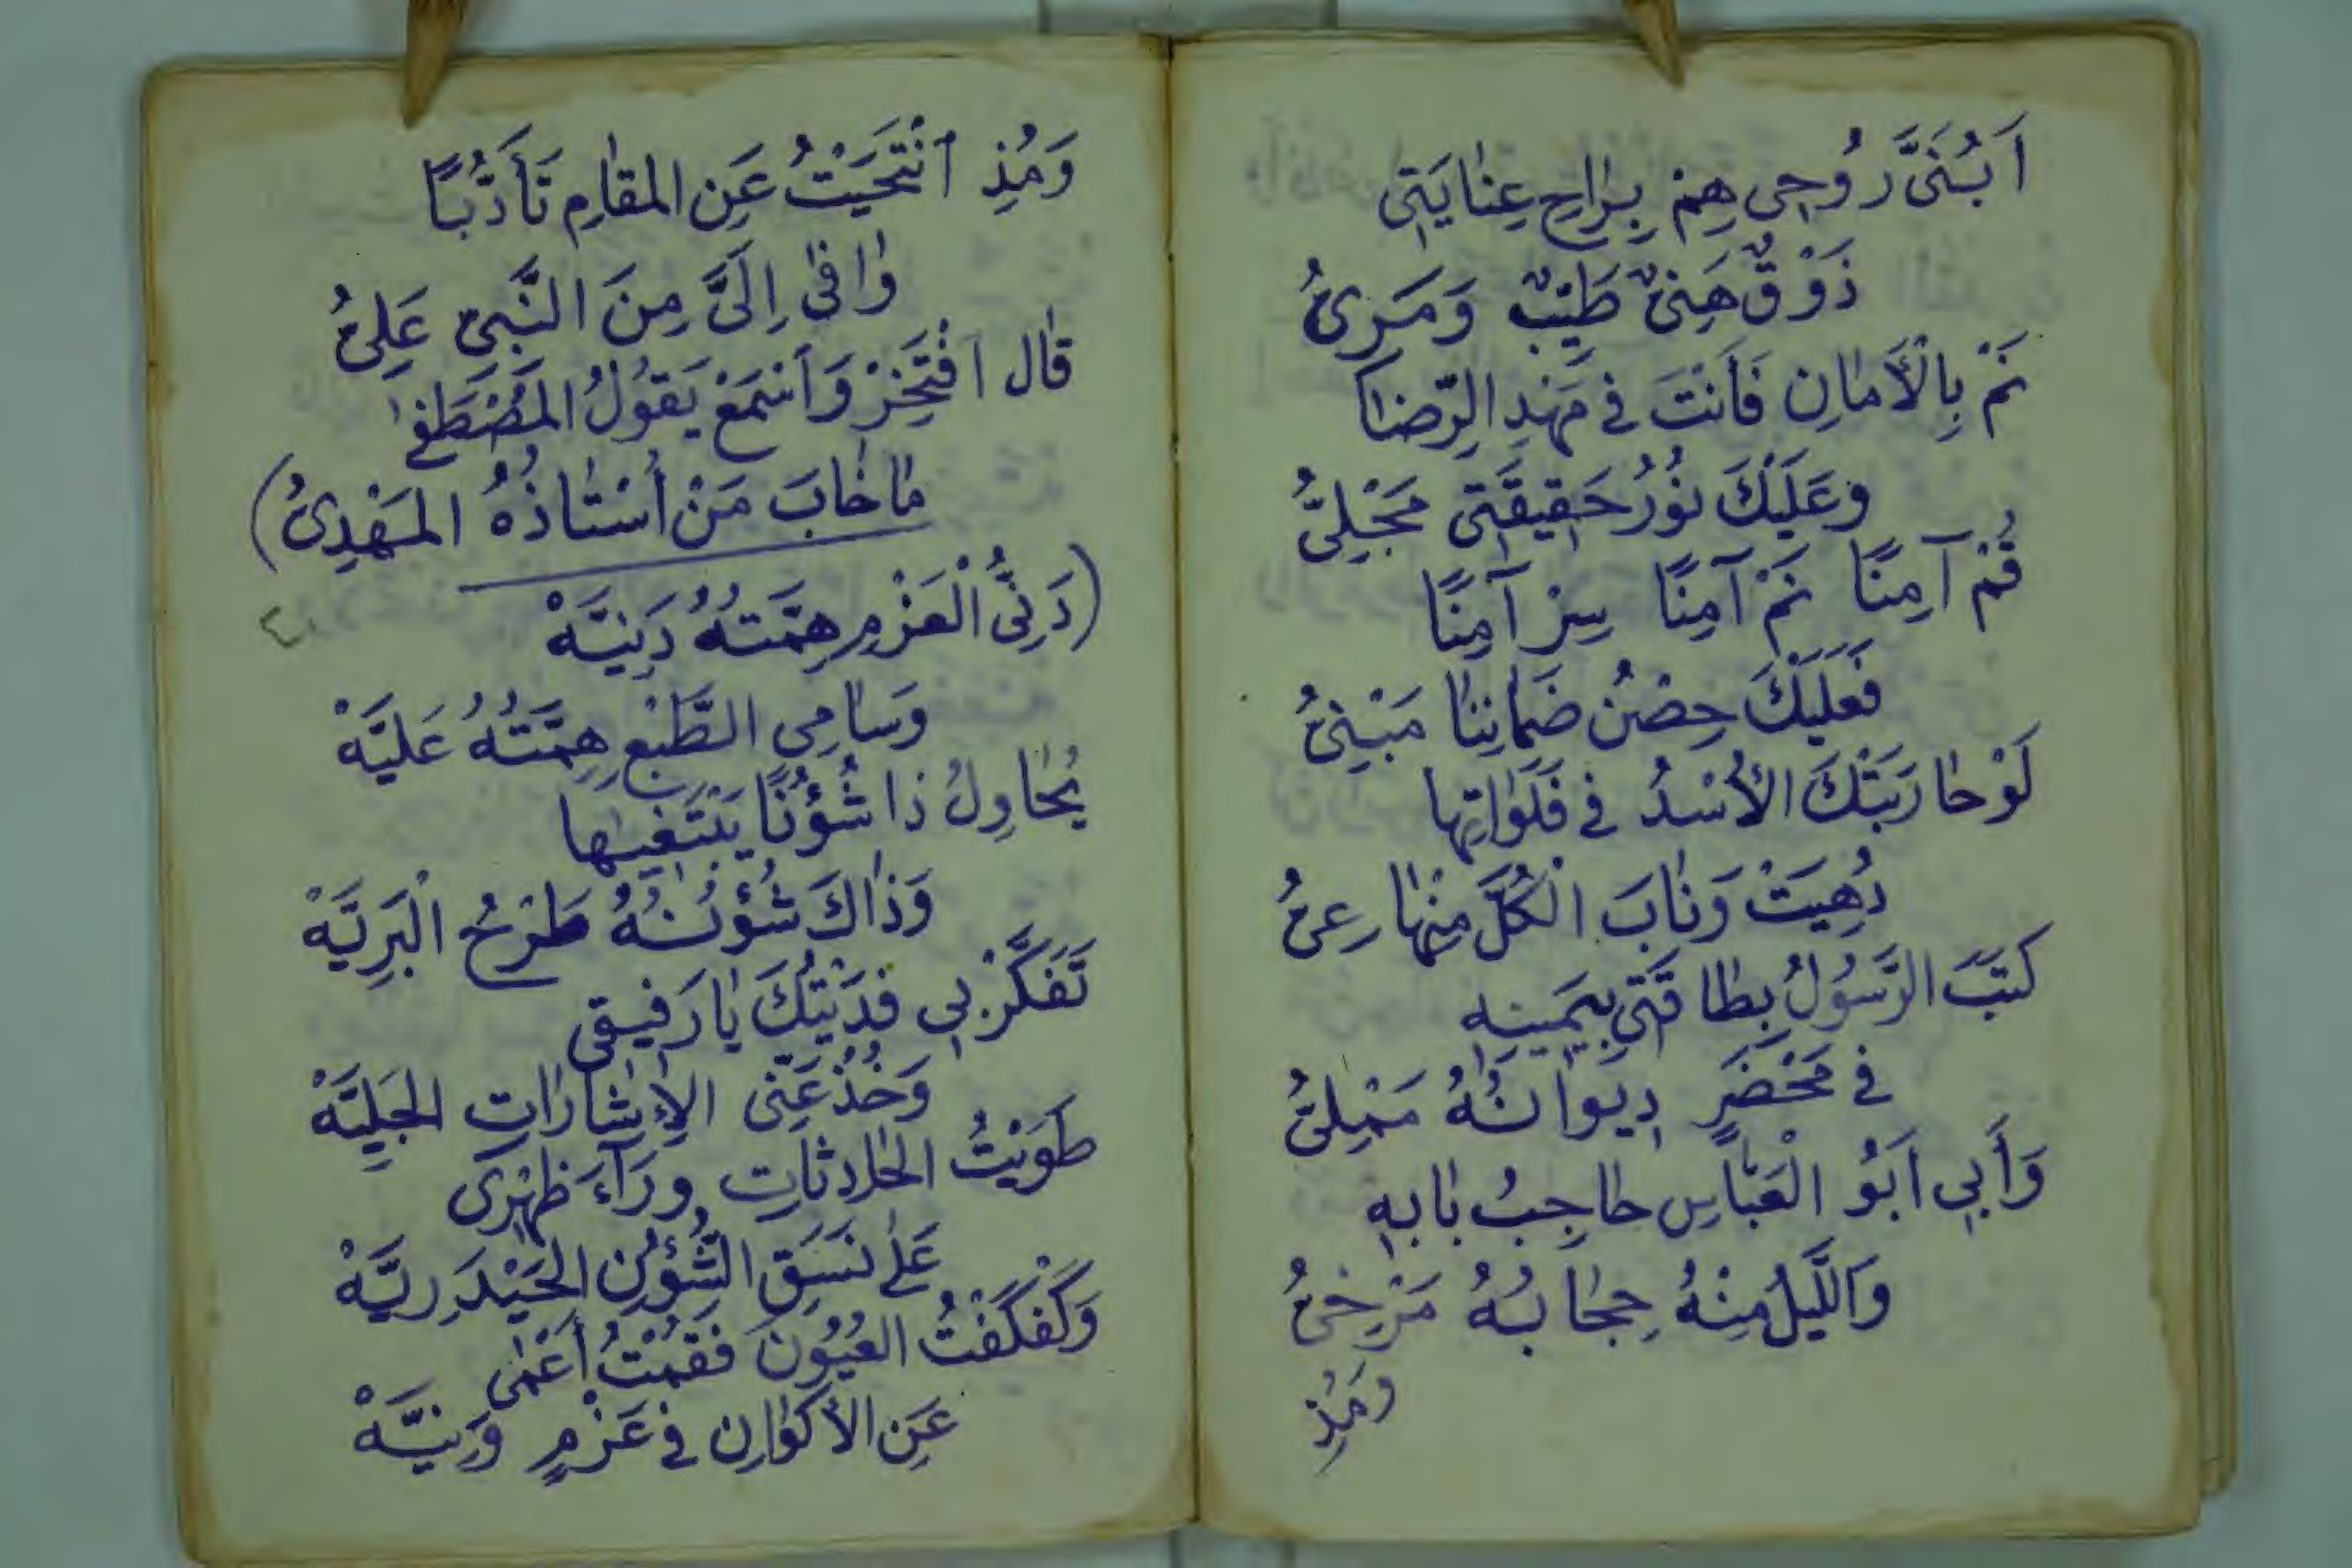 اَبُنَىَّ رُوحِى هِمْ بِرَاحِ عِنَايَتِى
ذَوْقٌ هَنِىٌ طَيِّبٌ وَمَرِىُّ
نَمْ بِالْأَمَانِ فَأَنْتَ فِى مَهْدِ الرِّضَا
وعَلَيْكَ نُورُ حَقِيقَتِى مَجْلِىُّ
قُمْ آمِنًا نَمْ آمِنًا سِرْ آمِنًا
فَعَلَيْكَ حِصْنُ ضَمَانِنَا مَبْنِىُّ
لَوْ حَارَبَتْكَ الأُسْدُ فِى فَلَوَاتِهَا
دُهِيَتْ وَنَابَ الْكُلَّ مِنْهَا عِىُّ
كَتَبَ الرَّسُولُ بِطَاقَتِى بِيَمِينِهِ
فِى مَحْضَرٍ دِيوَانُهُ مَمْلِىُّ
وَأَبِى اَبُو الْعَبَّاسِ حَاجِبُ بَابِهِ
وَاللَّيْلُ مِنْهُ حِجَابُهُ مَرْخِىُّ
ومُذِ
وَمُذِ ٱنْتَحَيْتُ عَنِ المَقَامِ تَأَدُّبًا
وَافَى اِلَىَّ مِنَ النَّبِىِّ عَلِىُّ
قَال افْتَخِرْ وَاَسْمَعْ يَقُولُ المُصْطَفَى
مَا خَابَ مَنْ أُسْتَاذُهُ المَهْدِىُّ)
(دَنِىُّ الْعَزْمِ هِمَّتُهُ دَنِيَّهْ
٤١
وَسَامِى الطَّبْعِ هِمَّتُهُ عَلِيَّهْ
يُحَاوِلُ ذَا شُؤُنًا يَبْتَغِيهَا
وَذَاكَ شُؤُنُهُ طَرْحُ الْبَرِيَّهْ
تَفَكَّرْ بِى فَدَيْتُكَ يَا رَفِيقِى
وَخُذْ عَنِّى الاِشَارَاتِ الجَلِيَّهْ
طَوَيْتُ الحَادِثَاتِ وَرَآءَ ظَهْرِى
عَلَى نَسَقِ الشُّؤُنِ الحَيْدَرِيَّهْ
وَكَفْكَفْتُ العُيُونَ فَقُمْتُ أَعْمَى
عَنِ الأَكْوَانِ فِى عَزْمٍ وَنِيَّهْ